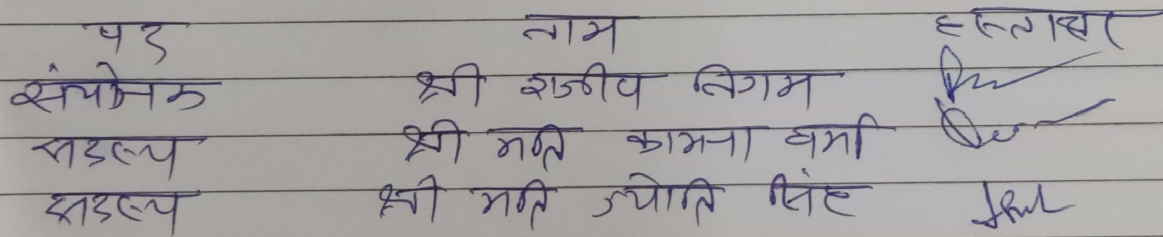 पद नाम हस्ताक्षर
संयोजक श्री राजीव निगम
सदस्य श्री मति कामना वर्मा
सदस्य श्री मति ज्योति सिंह